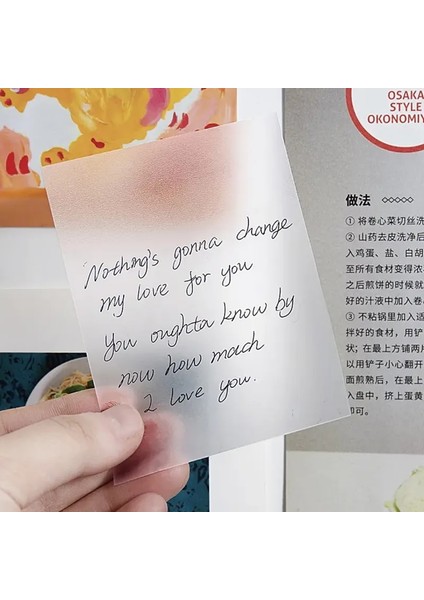 OSAKA
STYLE
OKONOMIY
做法
① 将卷心菜切丝洗
② 山药去皮洗净后
入鸡蛋、盐、白胡
至所有食材变得浓
之后煎饼的时候就
好的汁液中加入卷
③ 不粘锅里加入适
拌好的食材,用铲
状;在最上方铺两片
以用铲子小心翻开
面煎熟后,在最上
入盘中,挤上蛋黄
即可。
Nothing's gonna change
my love for you
You oughta know by
now how much
I love you.